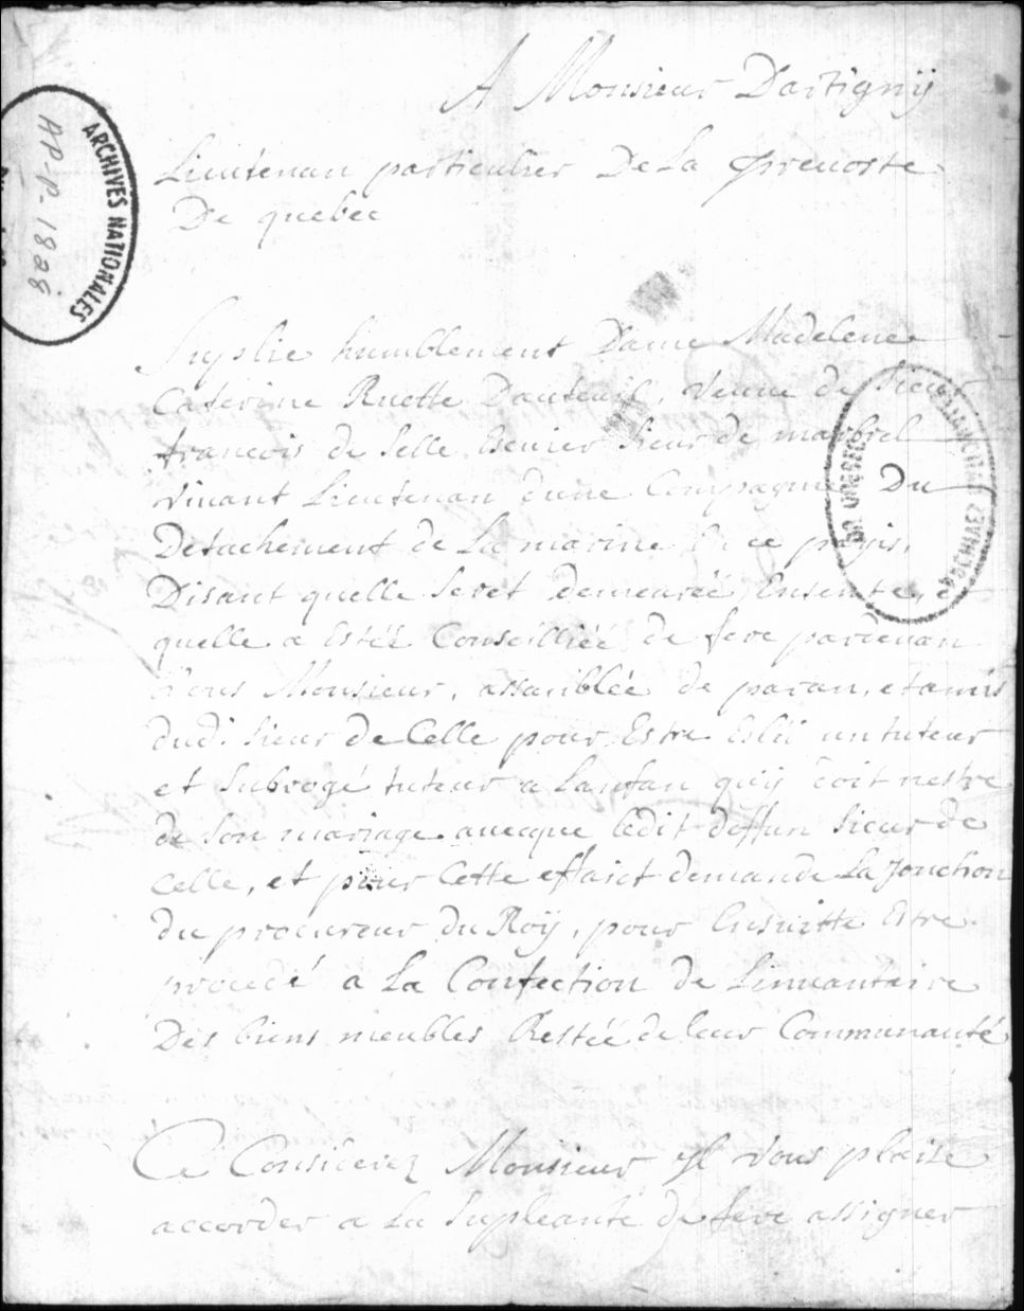 A Monsieur Dartignÿ
Lieutenan particulier De La prevoste
De quebec
Suplie humblement Dame Madelene
Caterine Ruette Dauteuil, veuve de sieur
francois de Selle Escuier sieur de marbrel
vivant Lieutenan dune Compagnie Du
Detachement de La marine En ce païs,
Disant quelle seret demeurée Ensente, et
quelle a Estéé Conseilliéé de fere pardevan
Vous Monsieur, assamblée de paran, et amis
dudi. sieur de Celle pour Estre Eslü un tuteur
et Subrogé tuteur a Lanfan quÿ doit nestre
de son mariage avecque ledit deffun sieur de
Celle, et pour Cette effaict demande La Jonction
du procureur du Roÿ, pour Ensuitte Estre
procedé a La Confection de Linvantaire
Des biens meubles Restéé de leur Communauté
Ce Considerez Monsieur Il vous plaise
accorder a La Supleante de fere assigner
ARCHIVES NATIONALES
AP-P-1828
ARCHIVES NATIONALES
DU QUEBEC